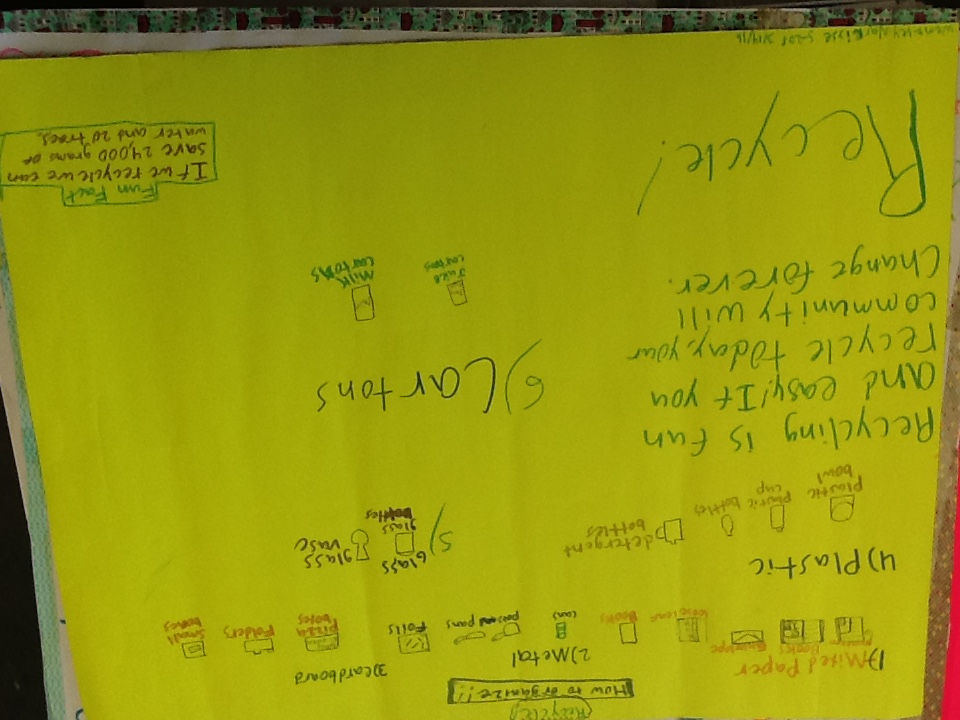 (Recycle)
How to organize!!!
1) Mixed Paper
Books
Envelope
2) Metal
can
pots and pans
Foils
3) cardboard
pizza boxes
Folders
Small boxes
4) Plastic
Plastic bowl
Plastic cup
bottles
detergent bottles
5)
Glass
glass bottles
glass vase
6) Cartons
Juice cartons
Milk cartons
Recycling is fun
and easy! If you
recycle today, your
community will
Change forever.
Recycle!
Fun Fact
If we recycle we can
save 24,000 grams of
water and 20 trees.